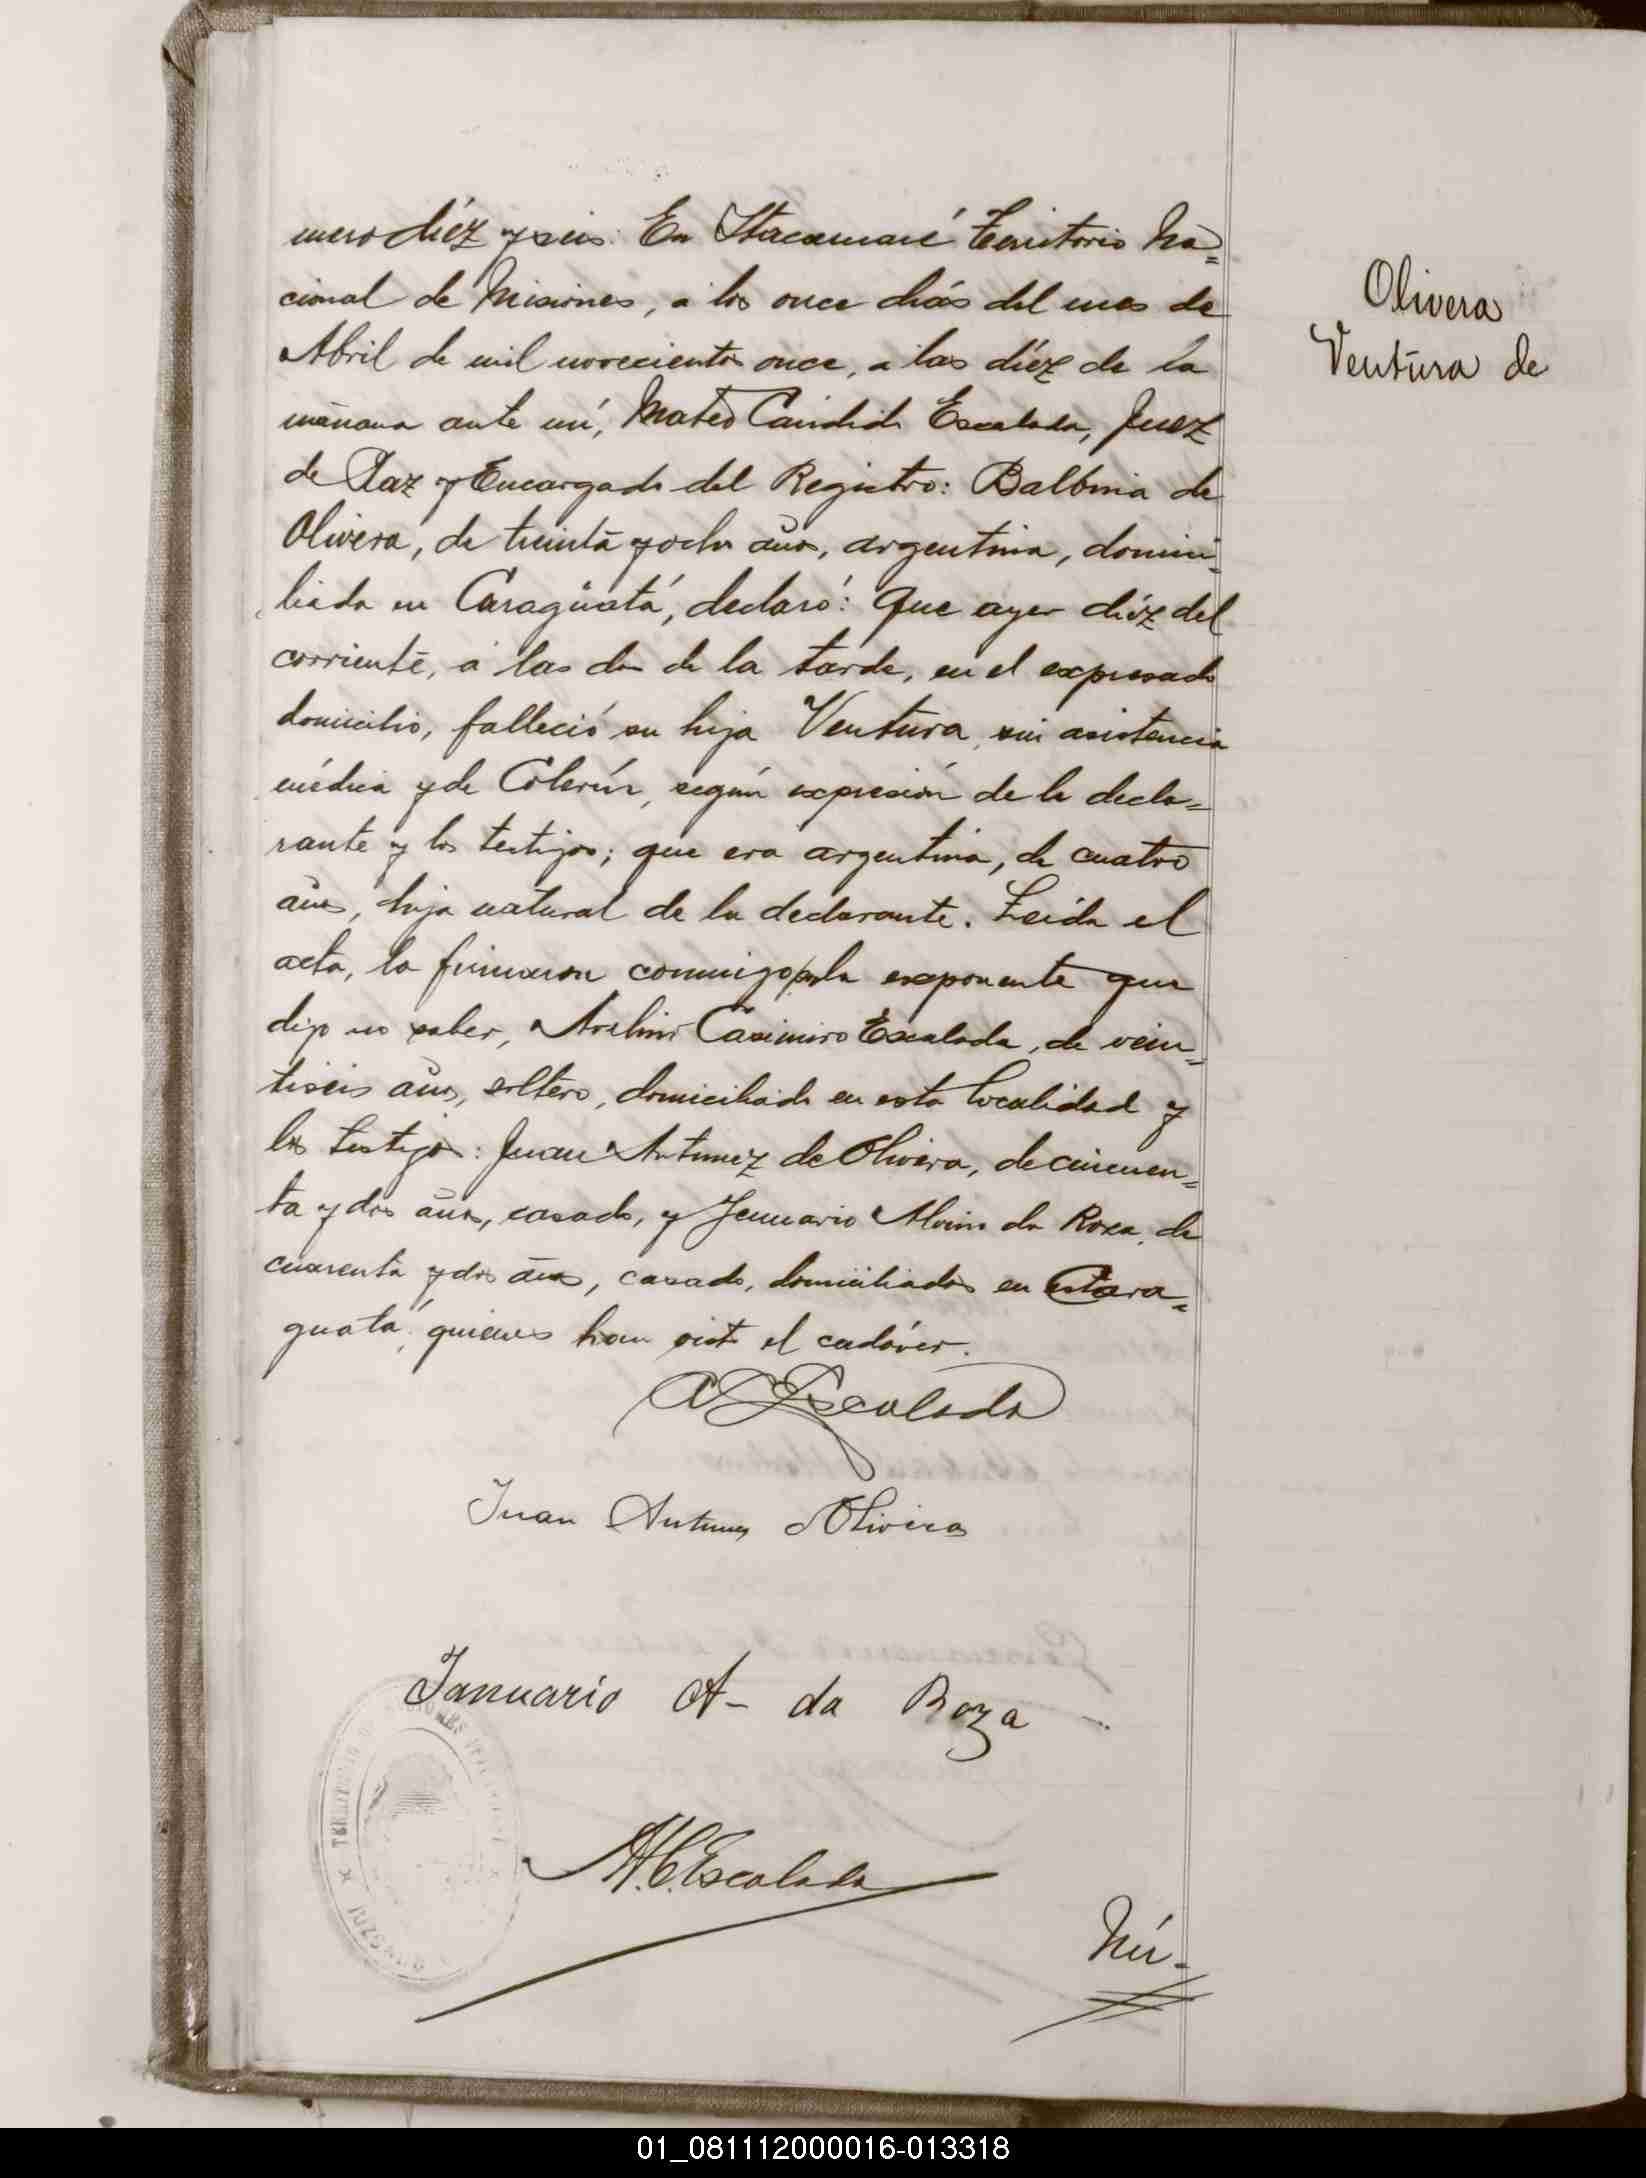 mero diéz y seis: En Itacaruaré Territorio Na=
cional de Misiones, a los once dias del mes de
Abril de mil novecientos once, a las diéz de la
mañana ante mi, Mateo Candido Escalada, Juez
de Paz y Encargado del Registro: Balbina de
Olivera, de treinta y ocho años, argentina, domici=
liada en Caraguatá, declaró: Que ayer diéz del
corriente, a las dos de la tarde, en el expresado
domicilio, falleció su hija Ventura, sin asistencia
médica y de Colerín, según expresión de la decla=
rante y los testigos; que era argentina, de cuatro
años, hija natural de la declarante. Leida el
acta, la firmaron conmigo, por la exponente que
dijo no saber, Avelino Casimiro Escalada, de vein=
tiseis años, soltero, domiciliado en esta localidad y
los testigos: Juan Antunez de Olivera, de cincuen=
ta y dos años, casado, y Jenuario Alvin da Roza, de
cuarenta y dos años, casado, domiciliados en Cara=
guatá, quienes han visto el cadáver.
Escalada
Juan Antunes Olivera
Januario A- da Roza
M.C. Escalada
Nú-
Olivera
Ventura de
01_081112000016-013318